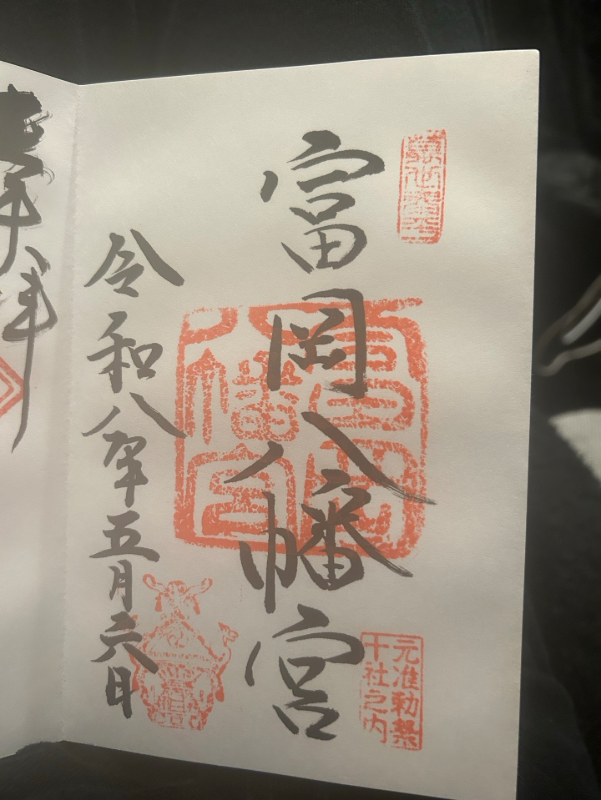 富岡八幡宮
元准勅祭
十社之内
富岡
八幡宮
令和八年五月六日
拝